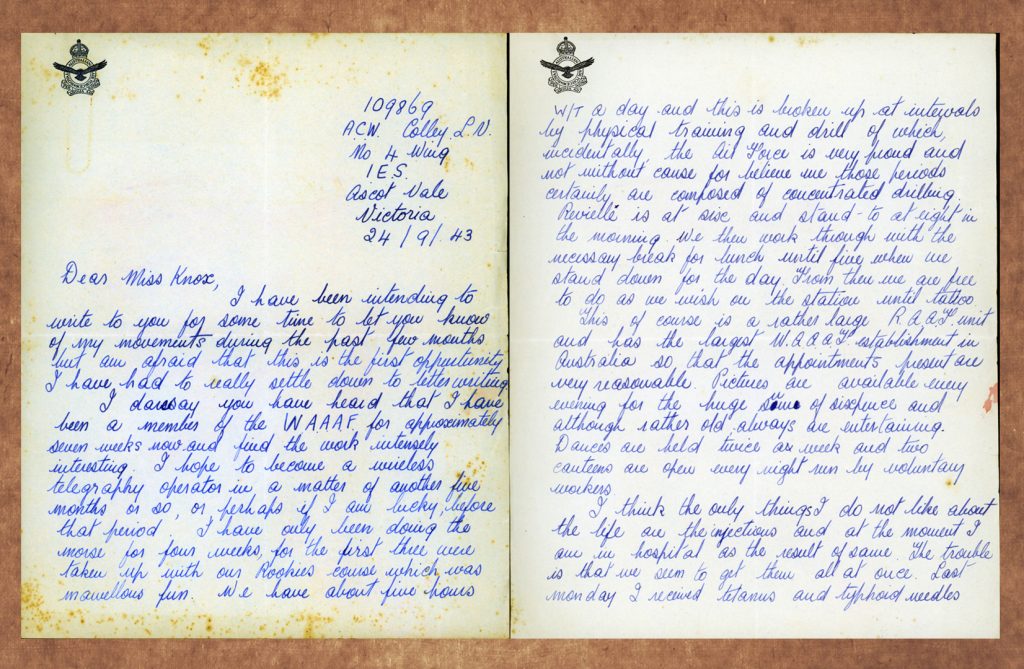 109869
A.C.W. Colley. L.N.
No 4 Wing
1 E.S.
Ascot Vale
Victoria
24/9/43
Dear Miss Knox,
I have been intending to
write to you for some time to let you know
of my movements during the past few months
but am afraid that this is the first opportunity
I have had to really settle down to letter writing.
I daresay you have heard that I have
been a member of the WAAAF for approximately
seven weeks now and find the work intensely
interesting. I hope to become a wireless
telegraphy operator in a matter of another five
months or so, or perhaps if I am lucky, before
that period. I have only been doing the
morse for four weeks, for the first three were
taken up with our Rookies course which was
marvellous fun. We have about five hours
W/T a day and this is broken up at intervals
by physical training and drill of which,
incidentally, the Air Force is very proud and
not without cause for believe me those periods
certainly are composed of concentrated drilling.
Revielle is at six and stand-to at eight in
the morning. We then work through with the
necessary break for lunch until five when we
stand down for the day. From then we are free
to do as we wish on the station until tattoo.
This of course is a rather large R.A.A.F. unit
and has the largest W.A.A.A.F. establishment in
Australia so that the appointments present are
very reasonable. Pictures are available every
evening for the huge sum of sixpence and
although rather old always are entertaining.
Dances are held twice a week and two
canteens are open every night run by voluntary
workers.
I think the only things I do not like about
the life are the injections and at the moment I
am in hospital as the result of same. The trouble
is that we seem to get them all at once. Last
monday I received tetanus and typhoid needles